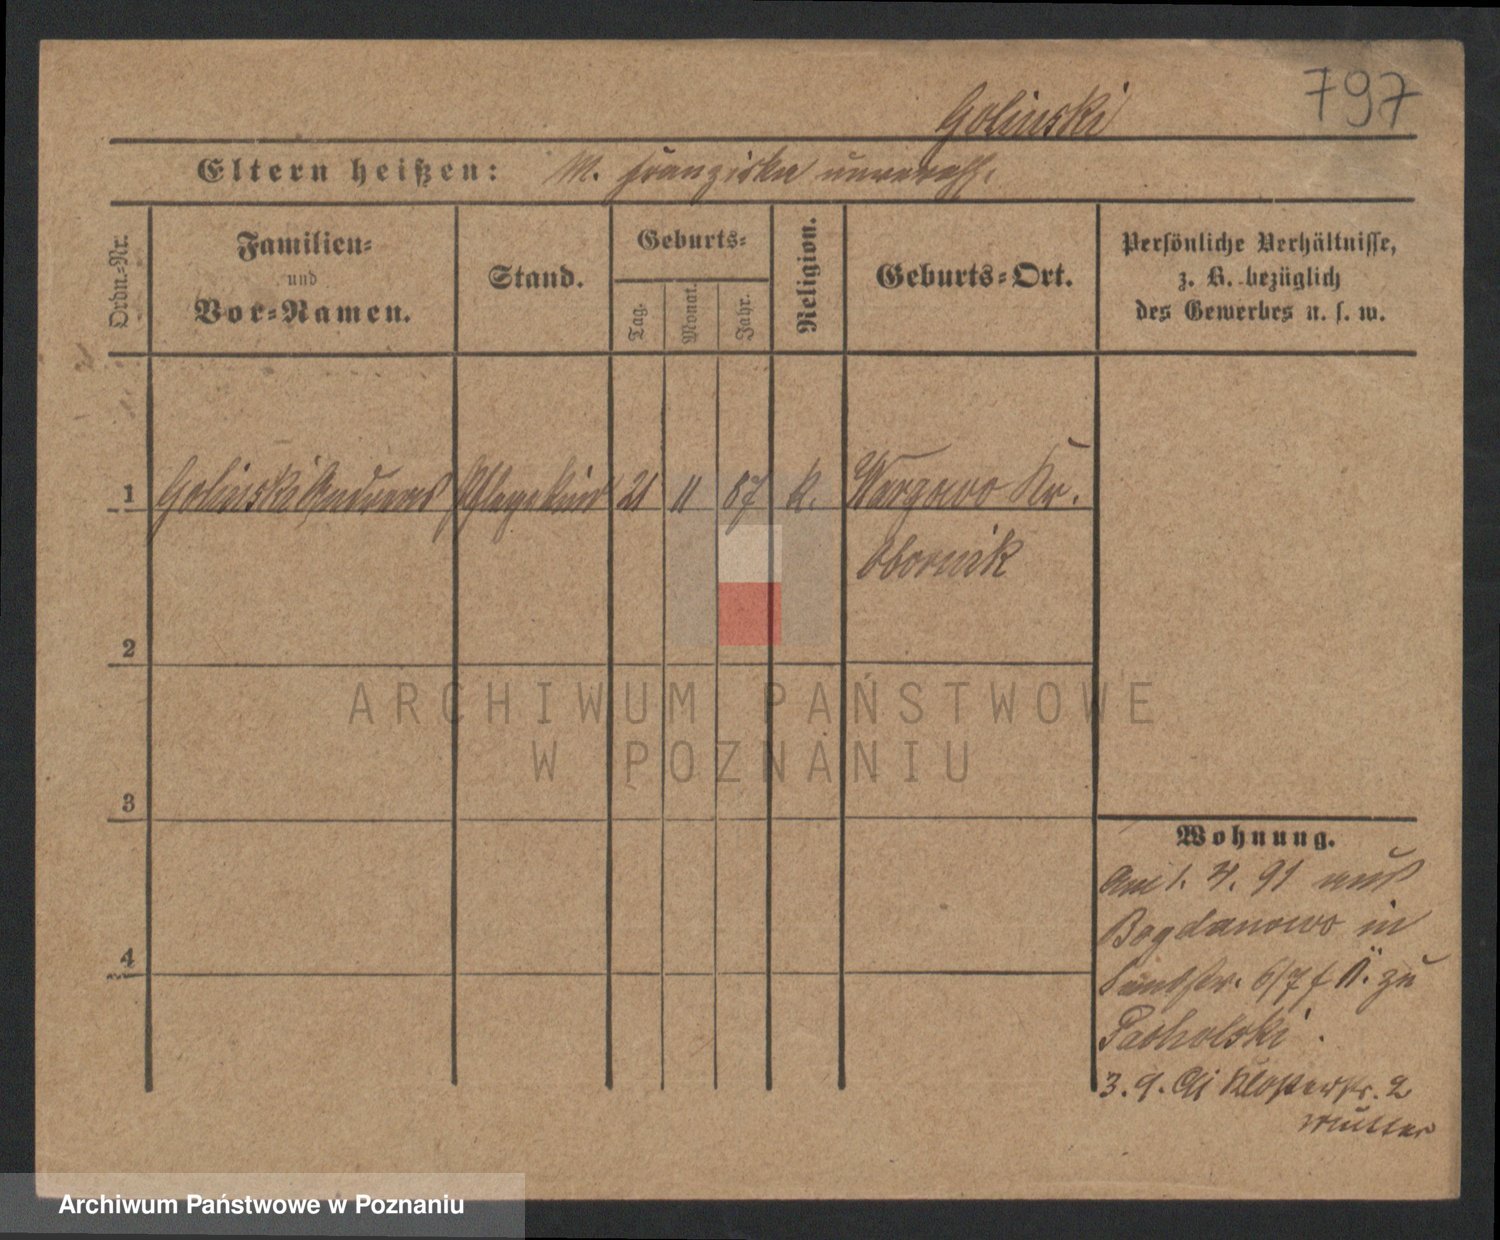 797
Golinski
Eltern heißen: M. Franziska unvereh.
Ordn.=Nr.
Familien=
und
Vor=Namen.
Stand.
Geburts=
Tag.
Monat.
Jahr.
Religion.
Geburts=Ort.
Persönliche Verhältnisse,
z. B. bezüglich
des Gewerbes u. s. w.
1 Golinski Andreas Pflegekind 21 11 87 K. Wargowo Kr.
Obornik
2
ARCHIWUM PAŃSTWOWE
W POZNANIU
3
Wohnung.
Am 1. 4. 91 aus
Bogdanowo in
6/7 f II. zu
3. 9. 91 Klosterstr. 2
Mutter
4
Archiwum Państwowe w Poznaniu